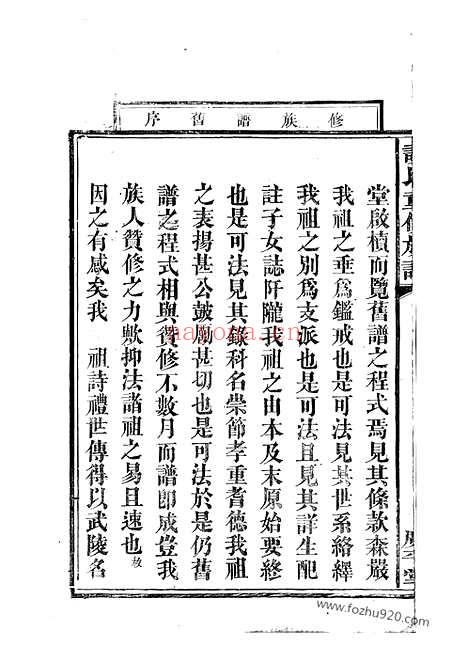 修族譜舊序
堂啟櫝而覽舊譜之程式焉見其條款森嚴
我祖之垂為鑑戒也是可法見其世系絡繹
我祖之別為支派也是可法且見其詳生配
註子女誌阡隴我祖之由本及末原始要終
也是可法見其錄科名崇節孝重耆德我祖
之表揚甚公鼓勵甚切也是可法於是仍舊
譜之程式相與贊修不數月而譜即成豈我
族人贊修之力歟抑法諸祖之易且速也故
因之有感矣我 祖詩禮世傳得以武陵名
氏重修族譜
堂
nayona.cn
www.fozhu920.com